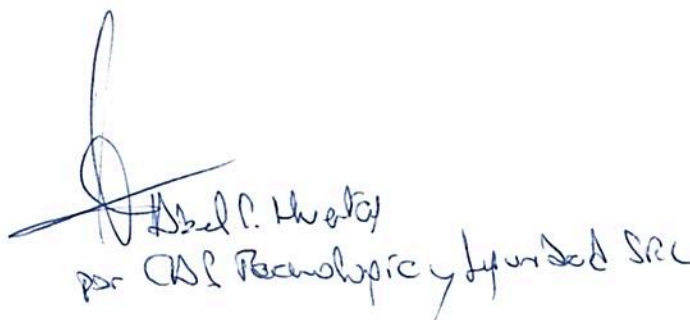 Abel C. Huertas
por CDS Tecnologic y Seguridad SRL